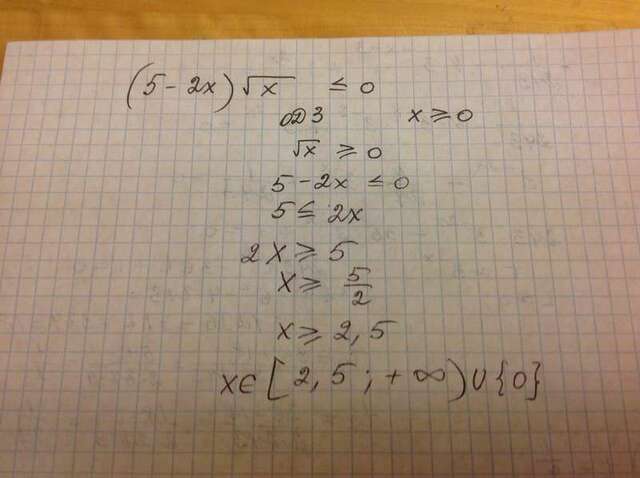 (5-2x)√x ≤ 0
ОДЗ x ≥ 0
√x ≥ 0
5-2x ≤ 0
5 ≤ 2x
2x ≥ 5
x ≥ 5/2
x ≥ 2,5
x∈[2,5;+∞)∪{0}